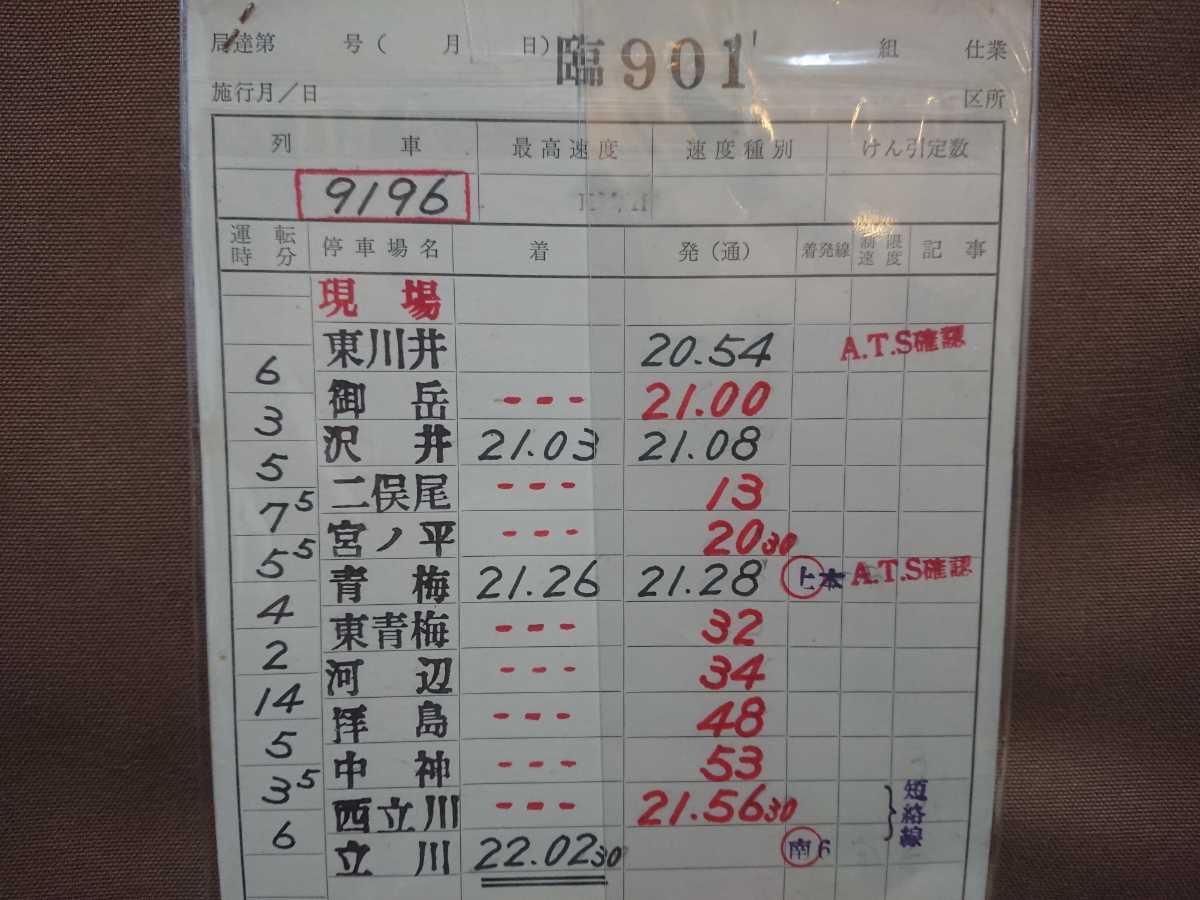 局達第 号( 月 日) 臨901 組 仕業
施行月/日 区所
列 車 最高速度 速度種別 けん引定数
9196
運転時分 停車場名 着 発(通) 着発線 制限速度 記事
現場
東川井 20.54 A.T.S確認
6
御岳 --- 21.00
3
沢井 21.03 21.08
5
二俣尾 --- 13
7 5
宮ノ平 --- 20 30
5 5
青梅 21.26 21.28 上本 A.T.S確認
4
東青梅 --- 32
2
河辺 --- 34
14
拝島 --- 48
5
中神 --- 53
3 5
西立川 --- 21.56 30 短絡線
6
立川 22.02 30 南6